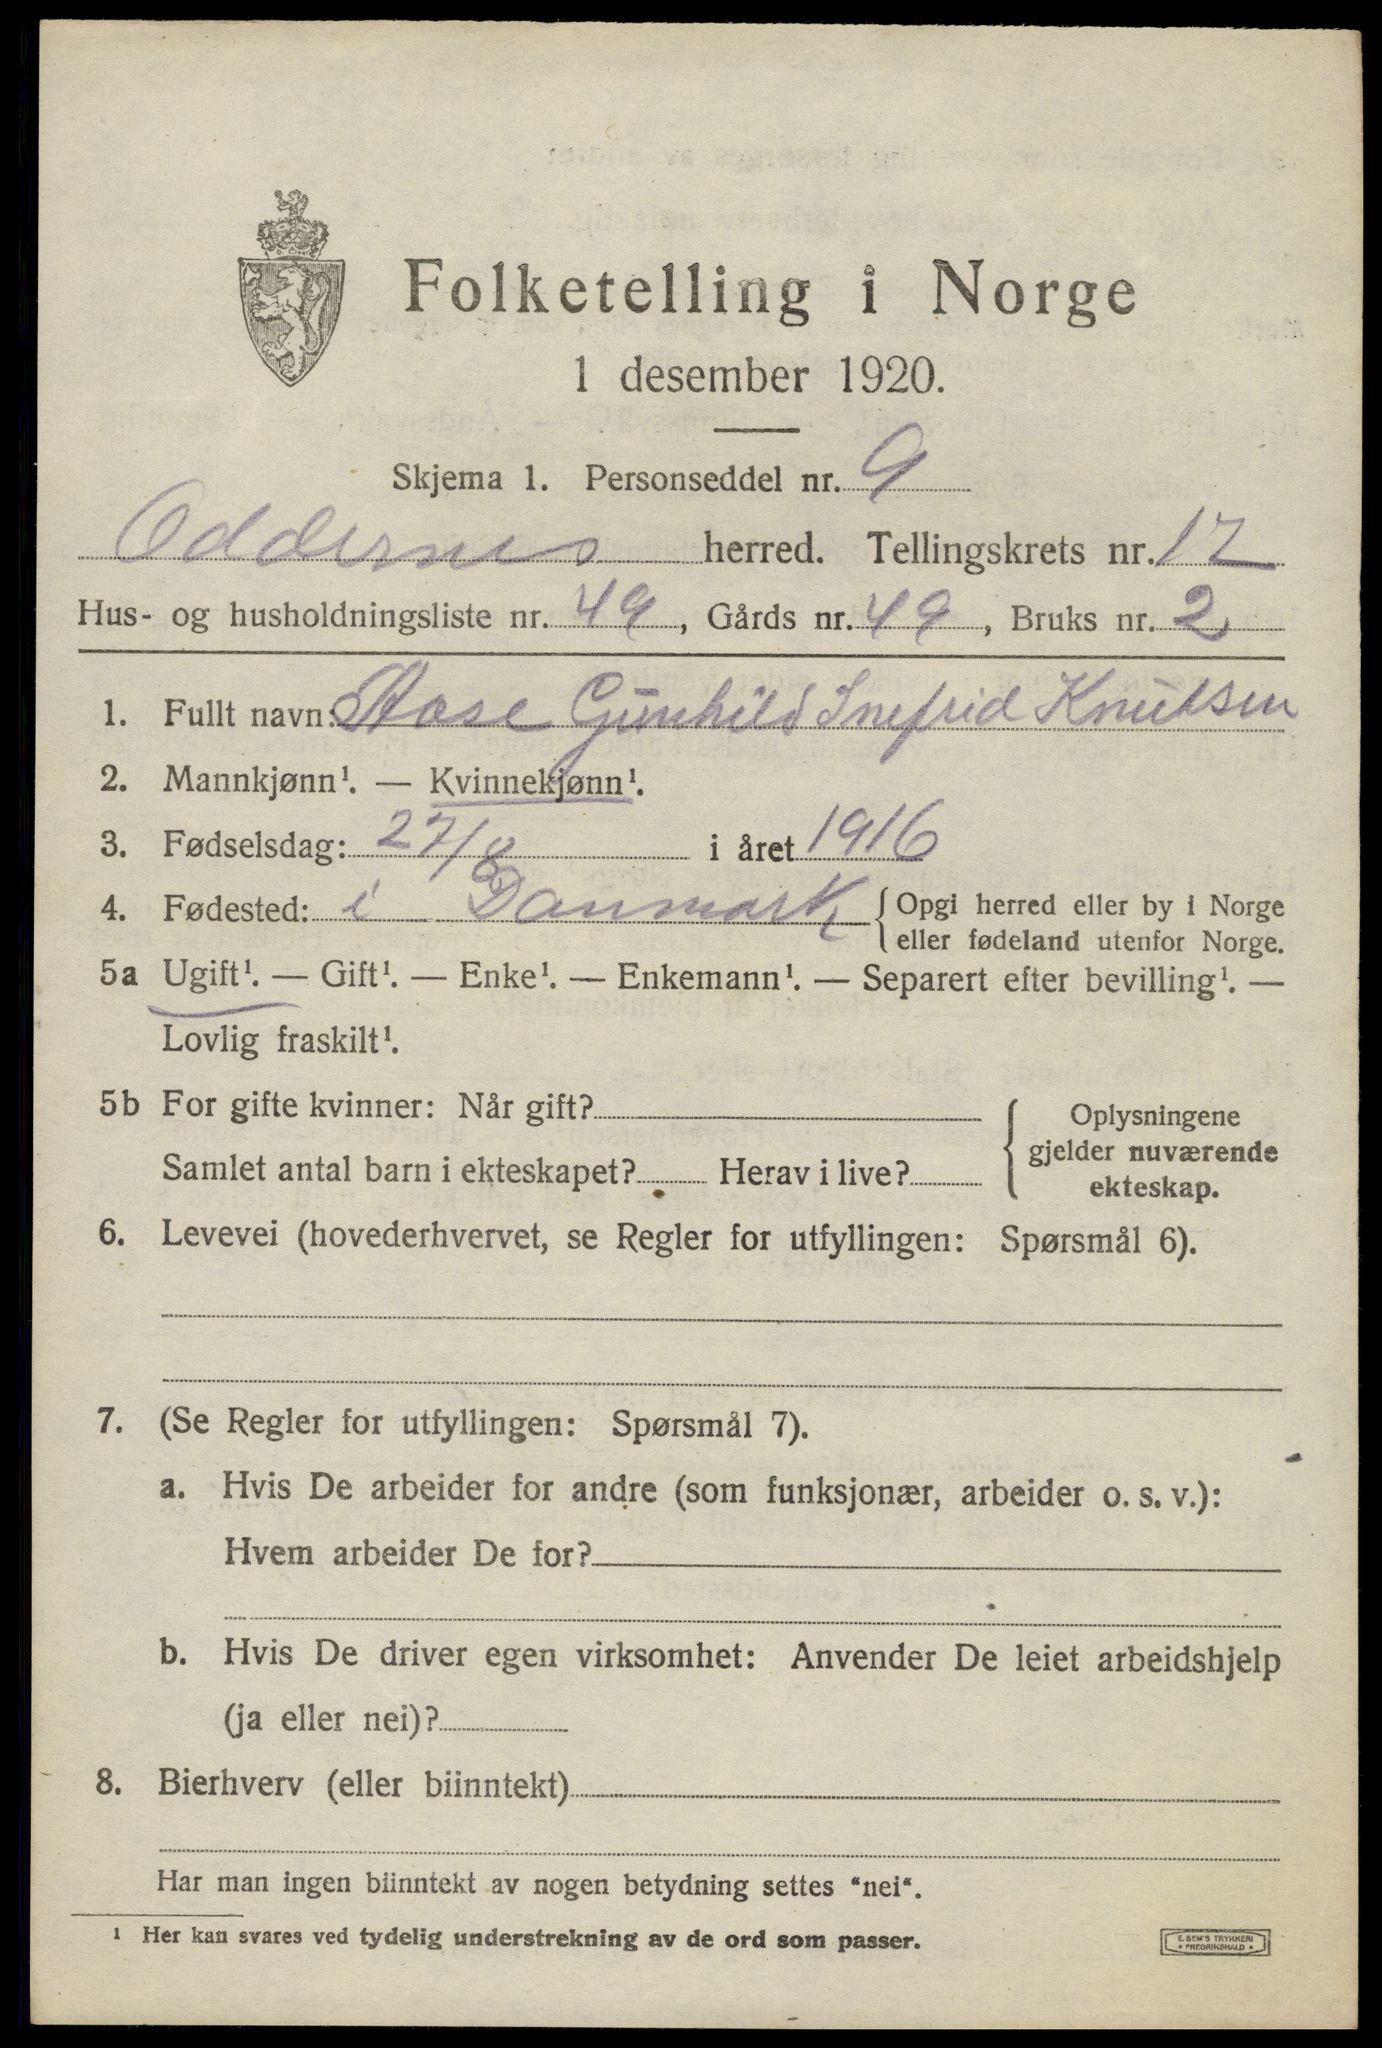 Folketelling i Norge
1 desember 1920.
Skjema 1. Personseddel nr. 9
Oddernes herred. Tellingskrets nr. 12
Hus- og husholdningsliste nr. 49, Gårds nr. 49, Bruks nr. 2
1. Fullt navn: Aase Gunhild Knutsen
2. Mannkjønn¹. — Kvinnekjønn¹.
3. Fødselsdag: 27/8 i året 1916
4. Fødested: i Danmark { Opgi herred eller by i Norge
eller fødeland utenfor Norge.
5a Ugift¹. — Gift¹. — Enke¹. — Enkemann¹. — Separert efter bevilling¹. —
Lovlig fraskilt¹.
5b For gifte kvinner: Når gift?
Samlet antal barn i ekteskapet? Herav i live?
{ Oplysningene
gjelder nuværende
ekteskap.
6. Levevei (hovederhvervet, se Regler for utfyllingen: Spørsmål 6).
7. (Se Regler for utfyllingen: Spørsmål 7).
a. Hvis De arbeider for andre (som funksjonær, arbeider o. s. v.):
Hvem arbeider De for?
b. Hvis De driver egen virksomhet: Anvender De leiet arbeidshjelp
(ja eller nei)?
8. Bierhverv (eller biinntekt)
Har man ingen biinntekt av nogen betydning settes "nei".
¹ Her kan svares ved tydelig understrekning av de ord som passer.
E. SEM'S TRYKKERI
* FREDRIKSHALD *